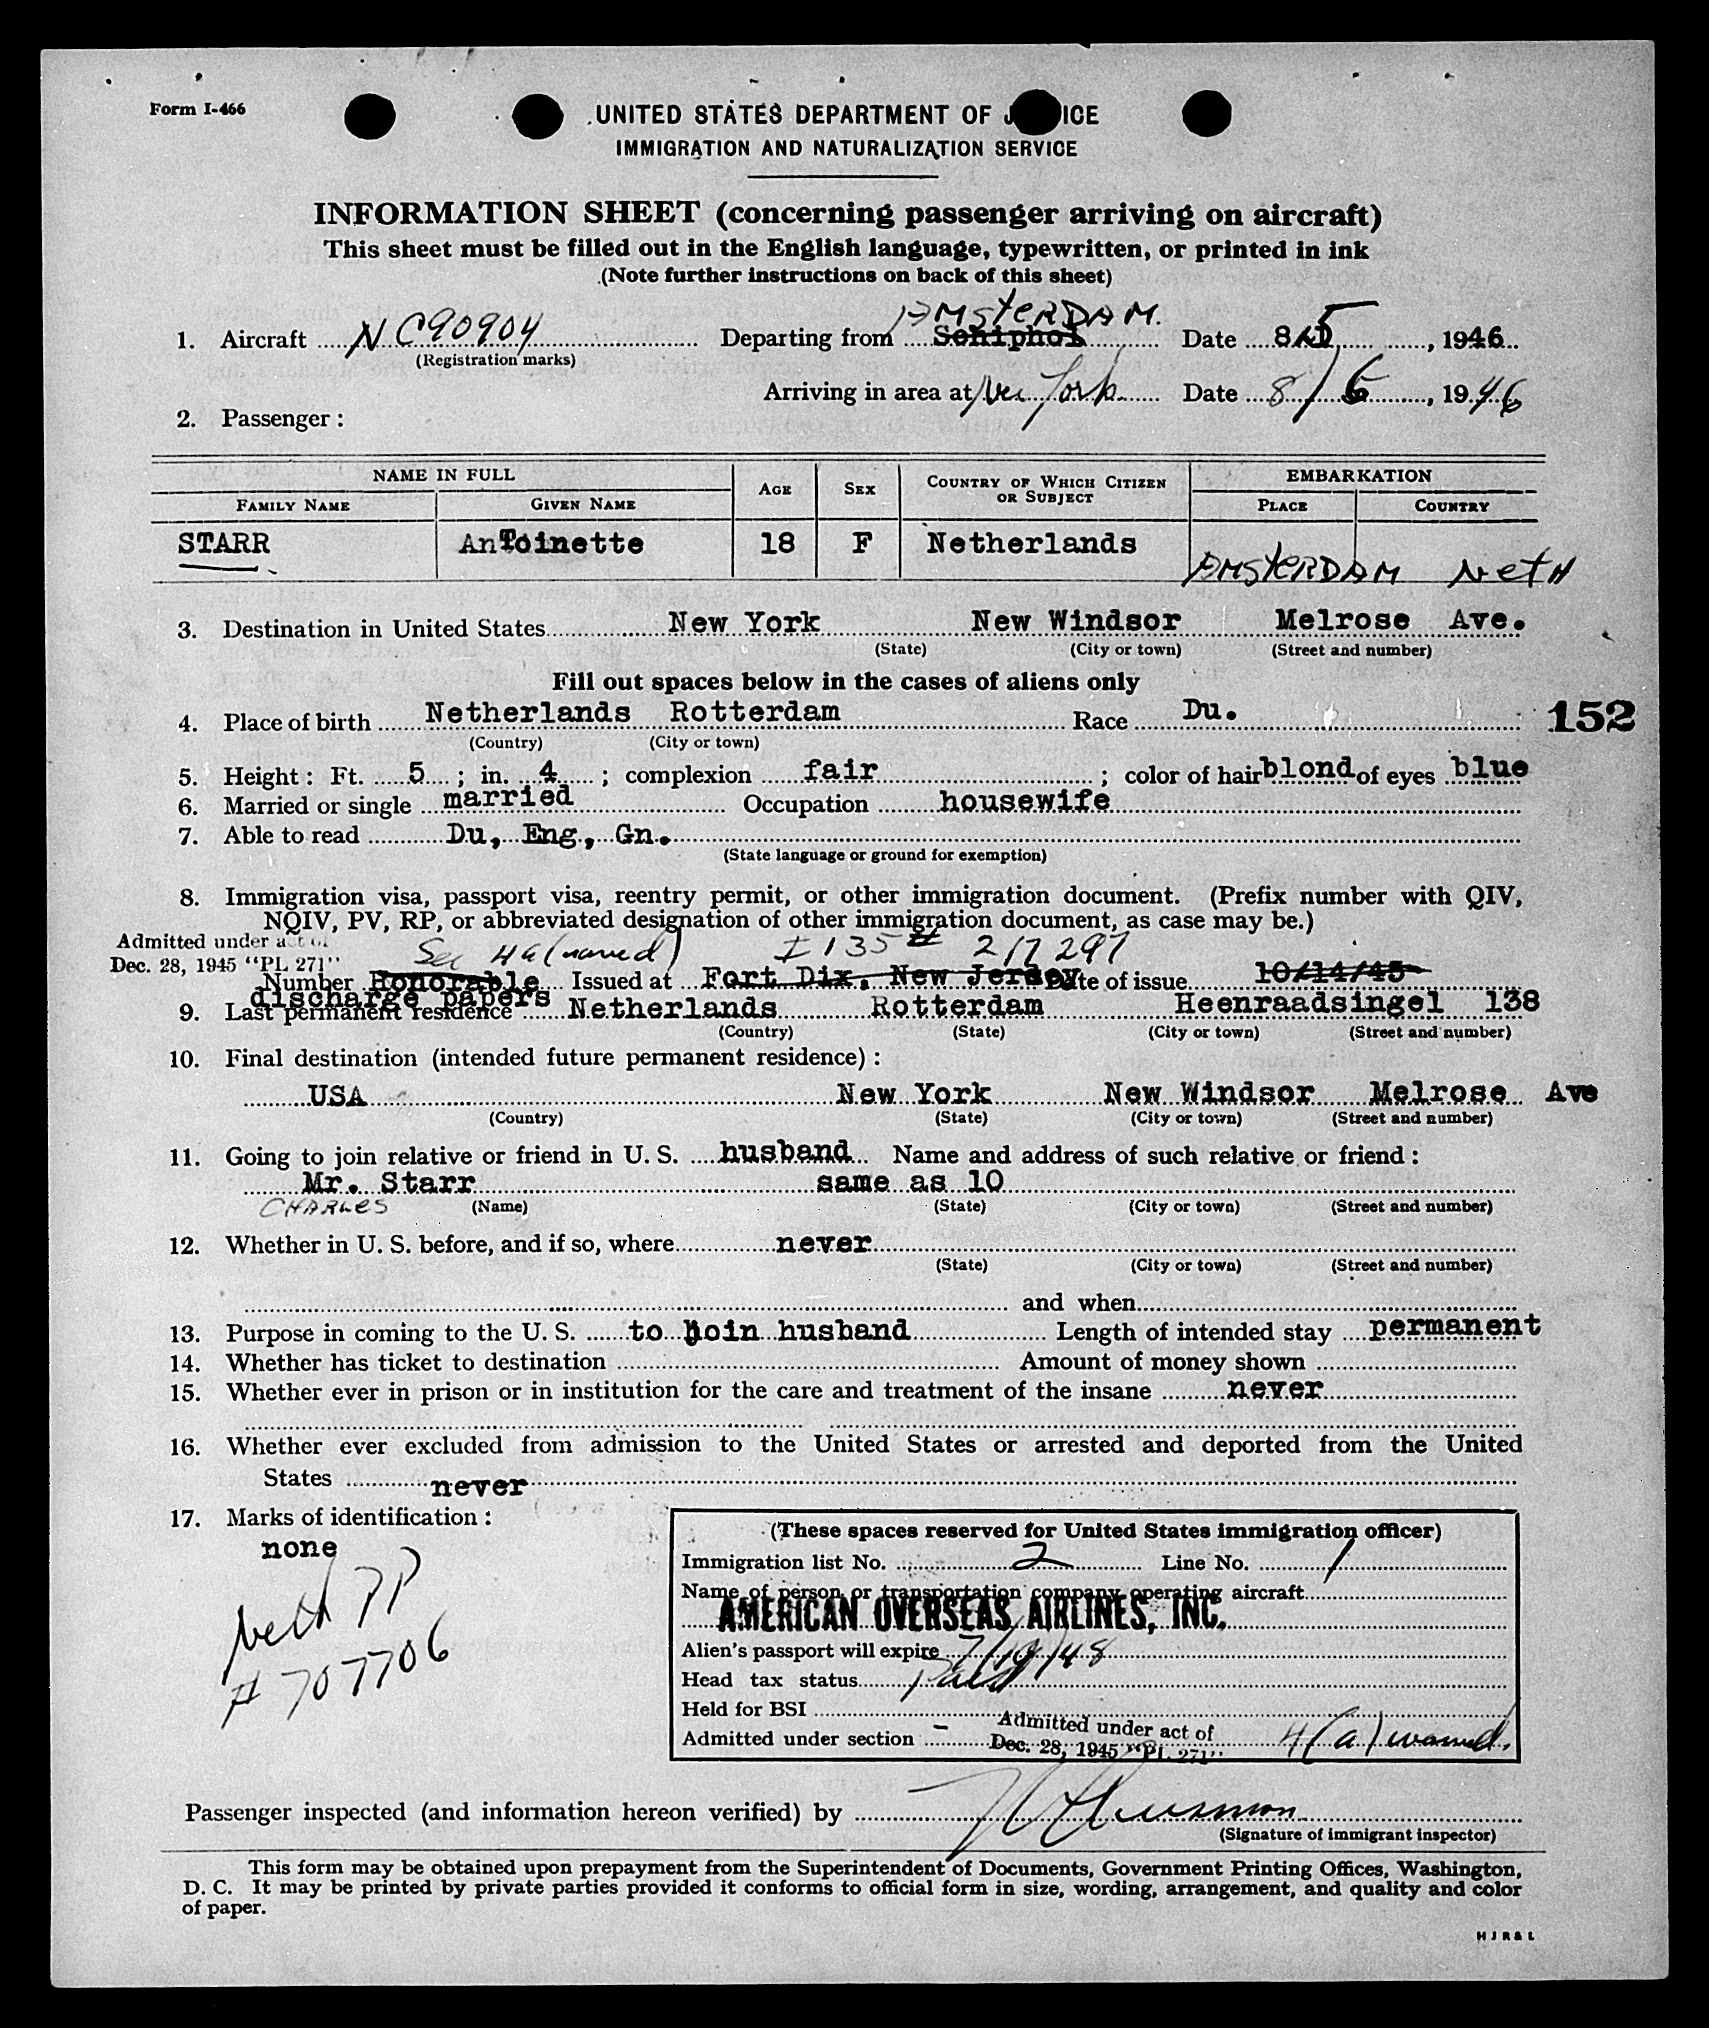 Form I-466
UNITED STATES DEPARTMENT OF J ICE
IMMIGRATION AND NATURALIZATION SERVICE
INFORMATION SHEET (concerning passenger arriving on aircraft)
This sheet must be filled out in the English language, typewritten, or printed in ink
(Note further instructions on back of this sheet)
AMSTERDAM.
1. Aircraft NC90904 Departing from Schiphol Date 8/5, 1946
(Registration marks)
Arriving in area at New York Date 8/6, 1946
2. Passenger:
NAME IN FULL AGE SEX COUNTRY OF WHICH CITIZEN OR SUBJECT EMBARKATION
FAMILY NAME GIVEN NAME PLACE COUNTRY
STARR AnToinette 18 F Netherlands AMSTERDAM NETH
3. Destination in United States New York New Windsor Melrose Ave.
(State) (City or town) (Street and number)
Fill out spaces below in the cases of aliens only
4. Place of birth Netherlands Rotterdam Race Du. 152
(Country) (City or town)
5. Height: Ft. 5; in. 4; complexion fair; color of hair blond of eyes blue
6. Married or single married Occupation housewife
7. Able to read Du, Eng., Gn.
(State language or ground for exemption)
8. Immigration visa, passport visa, reentry permit, or other immigration document. (Prefix number with QIV,
NQIV, PV, RP, or abbreviated designation of other immigration document, as case may be.)
Admitted under act of
Dec. 28, 1945 "PL 271"
Sec 4a (waved) I 135 # 217297
Number Honorable Issued at Fort Dix, New Jersey Date of issue 10/14/45
discharge papers
9. Last permanent residence Netherlands Rotterdam Heenraadsingel 138
(Country) (State) (City or town) (Street and number)
10. Final destination (intended future permanent residence):
USA New York New Windsor Melrose Ave
(Country) (State) (City or town) (Street and number)
11. Going to join relative or friend in U. S. husband Name and address of such relative or friend:
Mr. Starr same as 10
CHARLES (Name) (State) (City or town) (Street and number)
12. Whether in U. S. before, and if so, where never
(State) (City or town) (Street and number)
and when
13. Purpose in coming to the U. S. to join husband Length of intended stay permanent
14. Whether has ticket to destination Amount of money shown
15. Whether ever in prison or in institution for the care and treatment of the insane never
16. Whether ever excluded from admission to the United States or arrested and deported from the United
States never
17. Marks of identification:
none
Neth PP
# 707706
(These spaces reserved for United States immigration officer)
Immigration list No. 2 Line No. 1
Name of person or transportation company operating aircraft
AMERICAN OVERSEAS AIRLINES, INC.
Alien's passport will expire 7/19/48
Head tax status Paid
Held for BSI
Admitted under section - Admitted under act of Dec. 28, 1945 "PL 271" 4(a) waved.
Passenger inspected (and information hereon verified) by
(Signature of immigrant inspector)
This form may be obtained upon prepayment from the Superintendent of Documents, Government Printing Offices, Washington,
D. C. It may be printed by private parties provided it conforms to official form in size, wording, arrangement, and quality and color
of paper.
H J R & L